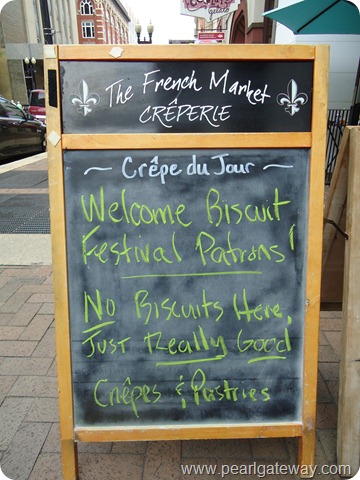 The French Market
CRÊPERIE
~ Crêpe du Jour ~
Welcome Biscuit
Festival Patrons!
No Biscuits Here,
Just Really Good
Crêpes & Pastries
www.pearlgateway.com